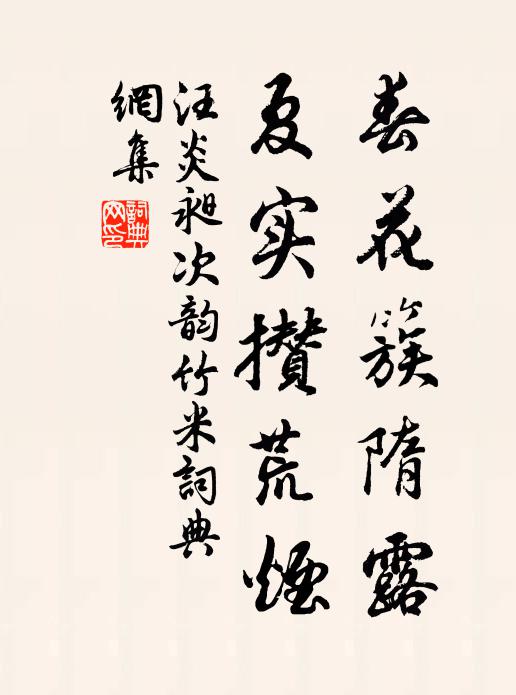 春花簇隋露
夏实攒荒煙
汪炎昶次韵竹米詞典
網集
詞典
网印